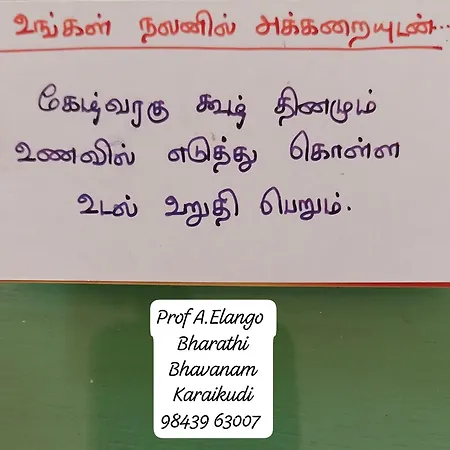 உங்கள் நலனில் அக்கறையுடன்...
கேழ்வரகு கூழ் தினமும்
உணவில் எடுத்து கொள்ள
உடல் உறுதி பெறும்.
Prof A.Elango
Bharathi
Bhavanam
Karaikudi
98439 63007